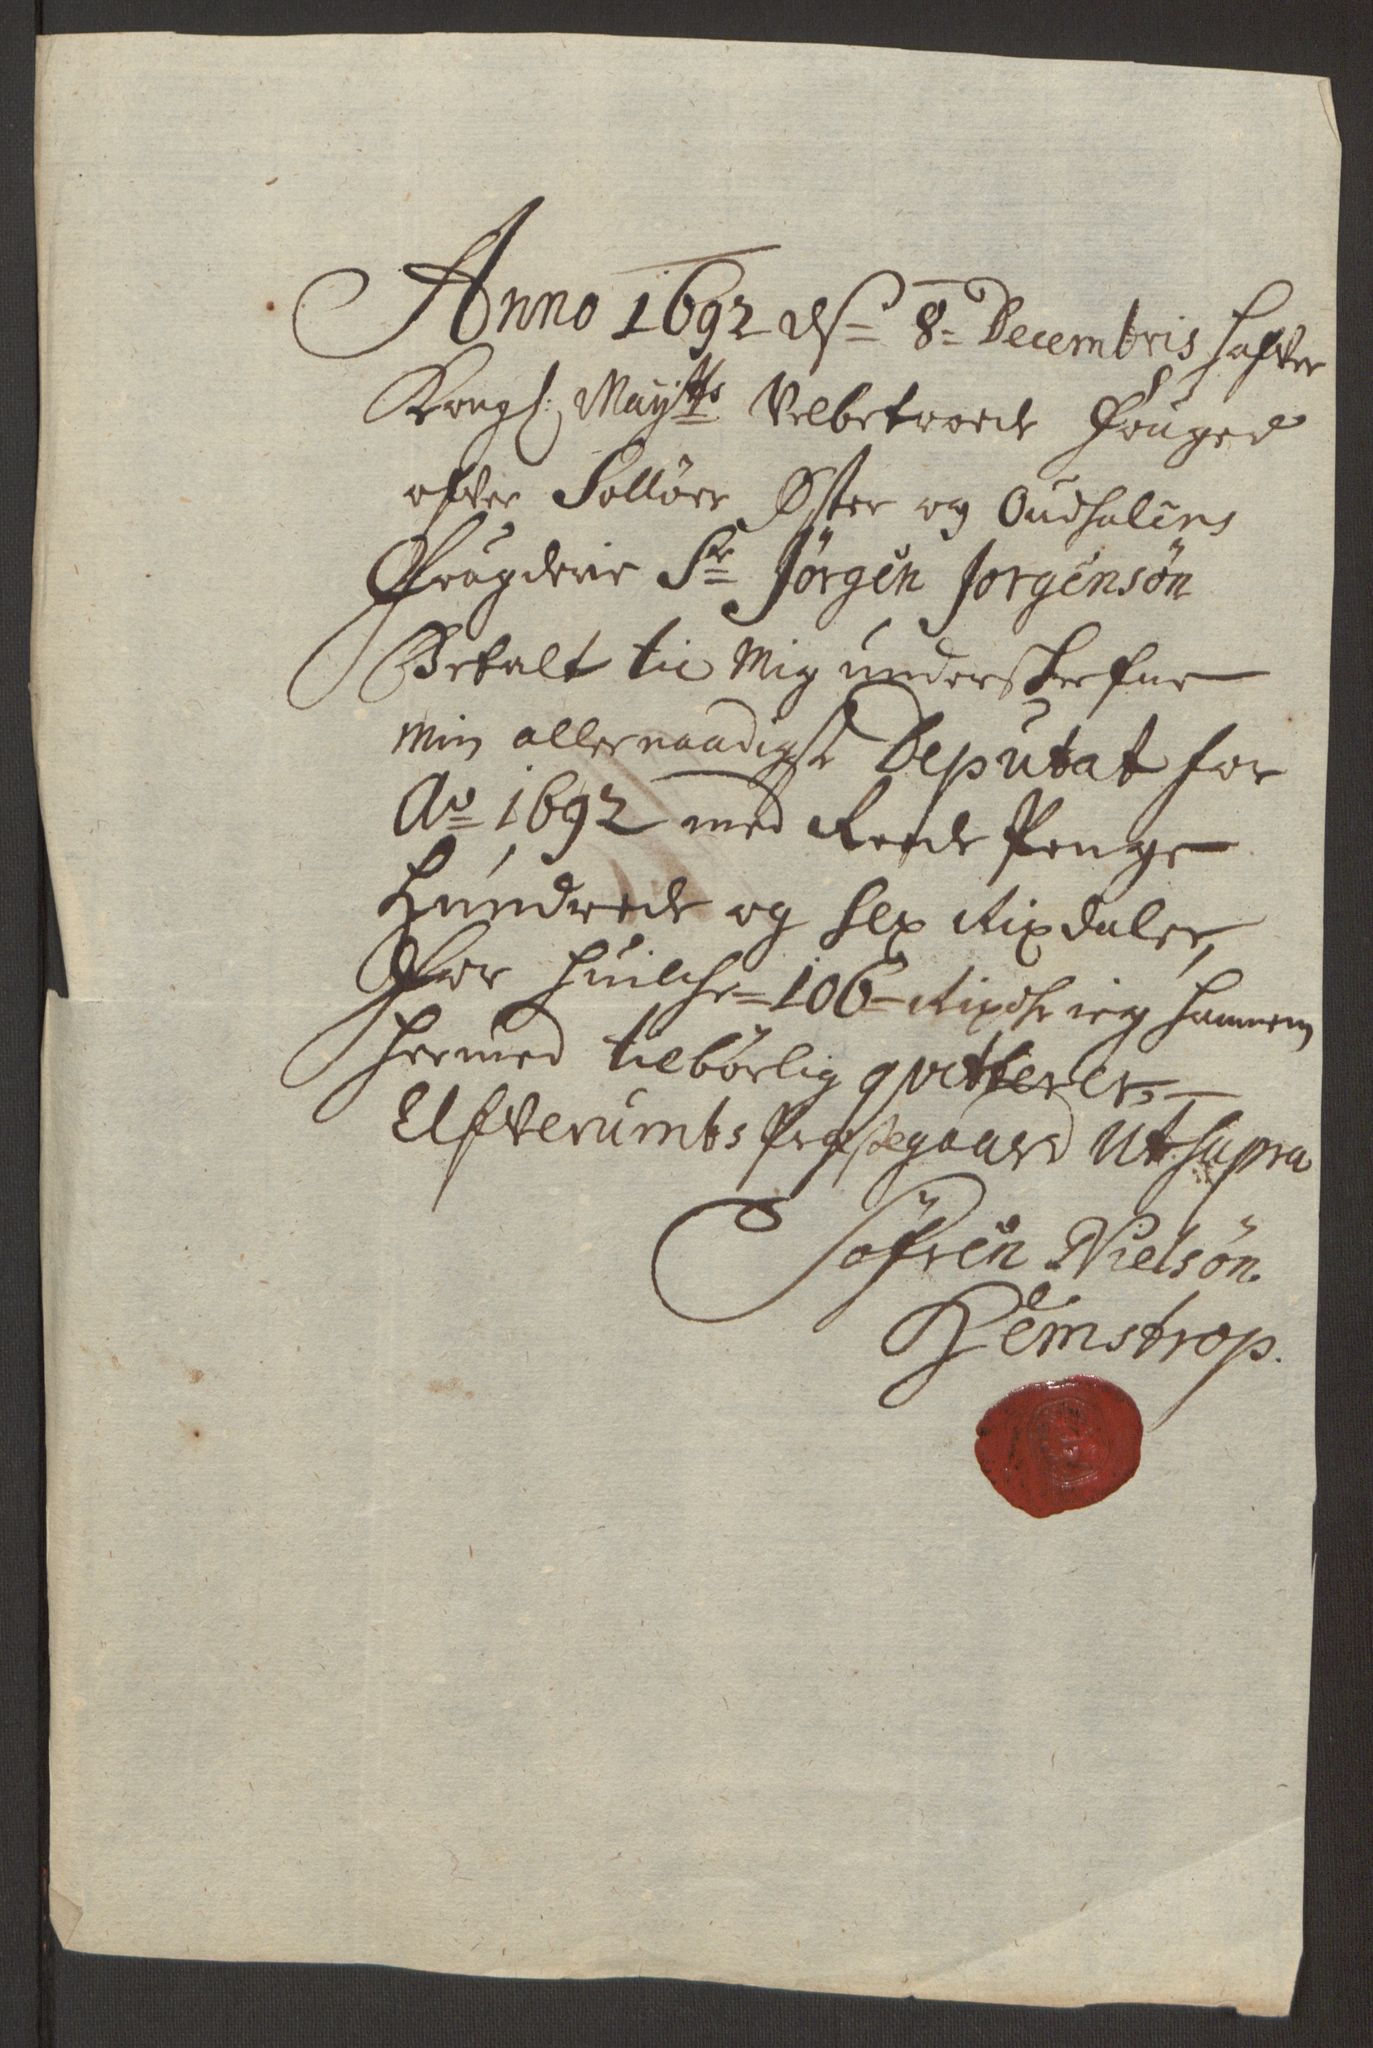 Anno 1692 d. 8 Decembris hafver
Kongl: Mayttz Velbetroede Fouged
ofver Sollöer Øster og Oudhalens
Fougderie Sr Jörgen Jorgensön
Betalt til Mig underskrefne
min allernaadigste Deputat for
Ao 1692 med Reede Penge
Hundrede og Sex Rixdaler,
For huilche 106 Rixdr ieg hannem
hermed tilbörlig qvitterer
Elfverumbs Præstegaard Ut supra
Söfren Nielsön
Hemstrop.